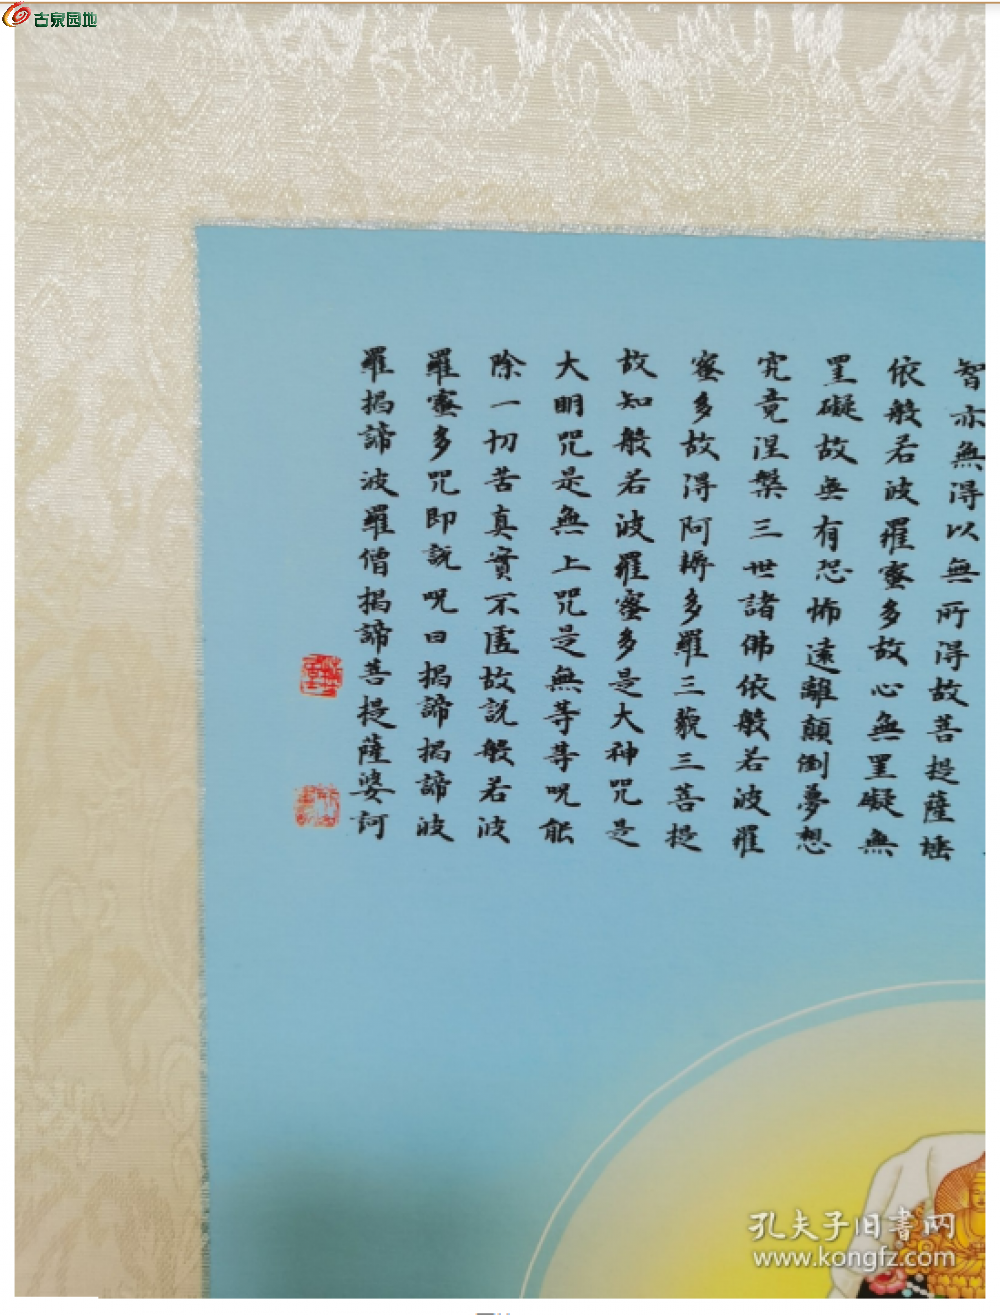 古泉园地
智亦無得以無所得故菩提薩埵
依般若波羅蜜多故心無罣礙無
罣礙故無有恐怖遠離顛倒夢想
究竟涅槃三世諸佛依般若波羅
蜜多故得阿耨多羅三藐三菩提
故知般若波羅蜜多是大神咒是
大明咒是無上咒是無等等呪能
除一切苦真實不虛故説般若波
羅蜜多咒即説呪曰揭諦揭諦波
羅揭諦波羅僧揭諦菩提薩婆訶
孔夫子旧書网
www.kongfz.com